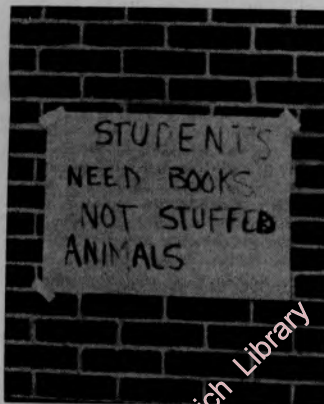 STUDENTS
NEED BOOKS
NOT STUFFED
ANIMALS
Library